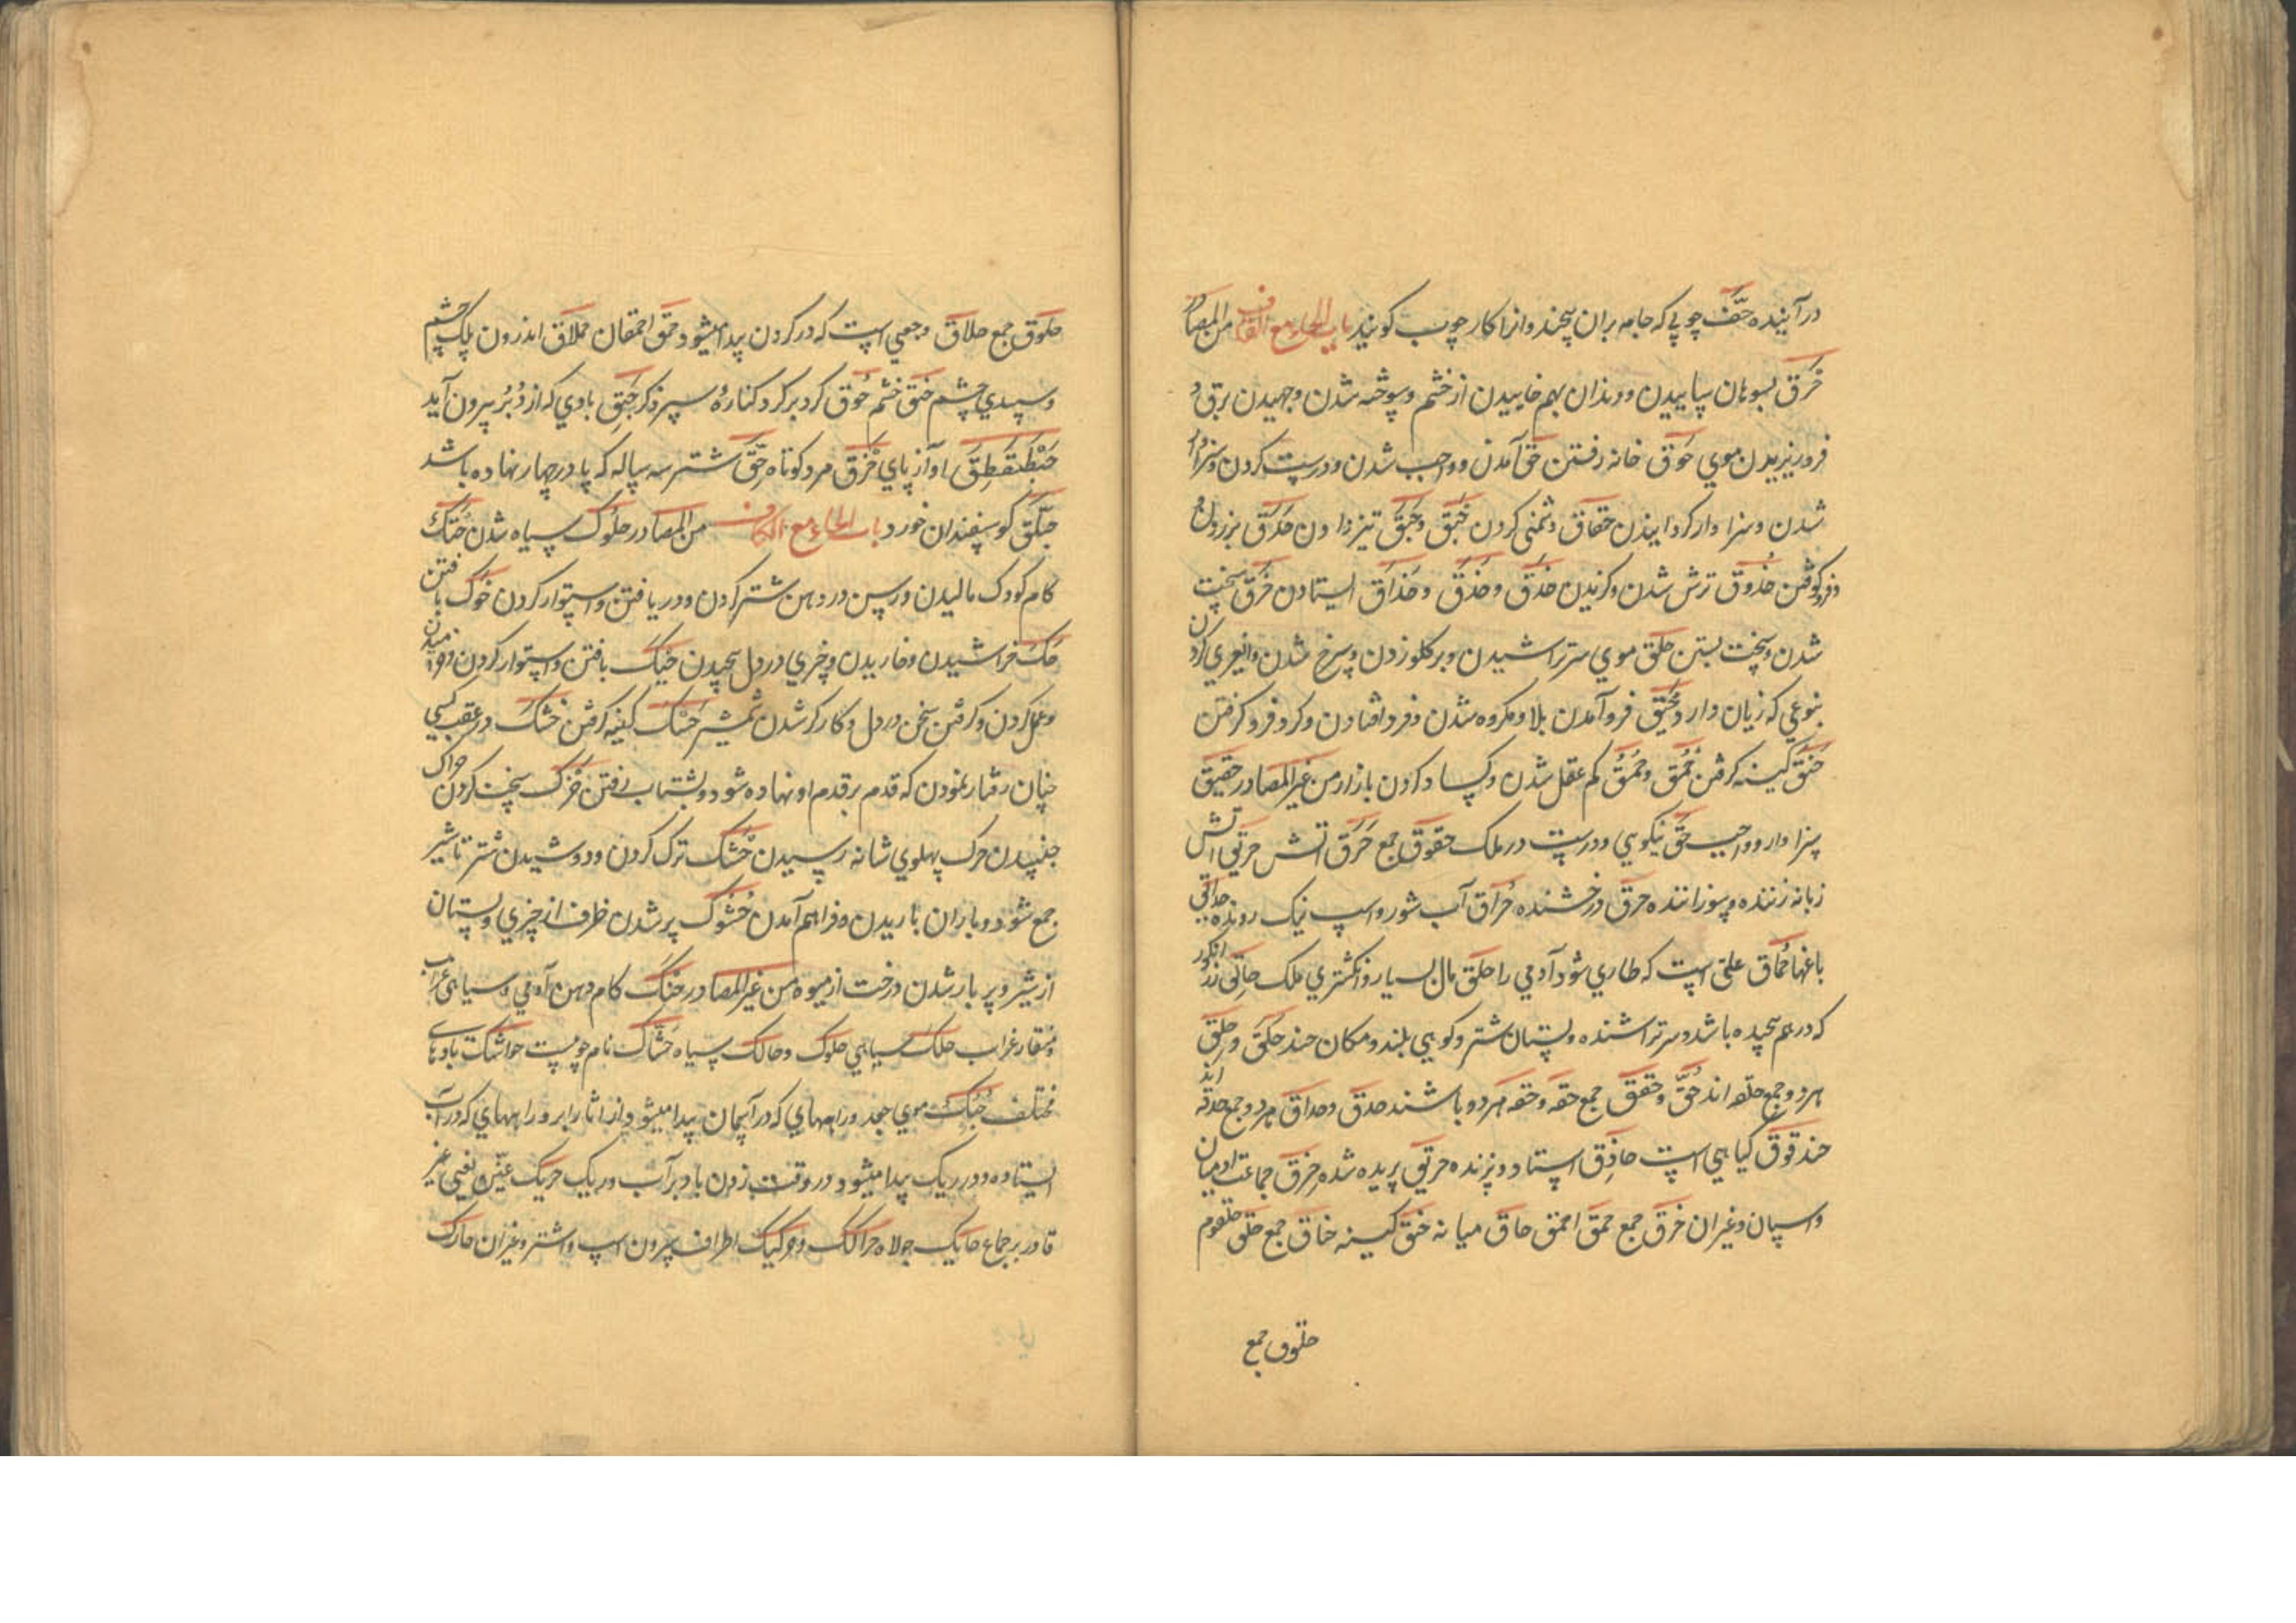 درآینده حَف چوبی که جامه بران پیچند وانرا کار چوب کویند باب الحاء مع القاف من المصادر
حَرق بسوهان ساییدن ودندان بهم خاییدن از خشم وسوخته شدن وجهیدن برق و
فرو ریزیدن موی حَوق خانه رفتن حَق آمدن وواجب شدن ودرست کردن وسزاوار
شدن وسزاوار کردانیدن حقاق دشمنی کردن حَبق وحَبَق تیز دادن حَدق
وفرو کوفتن حُذوق ترش شدن وکزیدن حَذق وحِذق وحَذاق ایستادن حَزق سخت
شدن وسخت بستن حَلق موی سر تراشیدن وبر کلو زدن وسرخ شدن
بنوعی که زیان دارد حَیق فرو آمدن بلا ومکروه شدن وفرو افتادن وکرد فرو کرفتن
حَنَق کینه کرفتن حُمق وحُمُق کم عقل شدن وکساد کردن بازار من غیر المصادر حقیق
سزاوار وواجب حَق نیکویی ودرست در ملک حقوق جمع حَرَق اتش حریق اتش
زبانه زننده وسوزاننده حَرق درخشنده حُراق آب شور واسب نیک رونده حدایق
باغها حُماق علتی است که طاری شود آدمی را حلق مال بسیار وانکشتری ملک حالق زر انکور
که درهم پیچیده باشد وسر تراشنده وپستان شتر وکوهی بلند ومکان چند حَلَق وحِلَق
هر دو جمع حلقه اند حُق وحقق جمع حقه وحقه هر دو باشند حدق وحداق هر دو جمع حدقه اند
حندقوق کیاهی است حاذق استاد وبرنده حریق بریده شده حِزق جماعت ادمیان
واسبان وغیر ان حَزق جمع حمق احمق حاق میانه حنق کینه حناق جمع حلق حلقوم
حلوق جمع
حلوق جمع حلاق وجعی است که در کردن پیدا میشود حمق احمقان حملاق اندرون پلک چشم
وسپیدی چشم حَنَق خشم حُوق کرد برکرد کنارهٔ سر ذکر حَبِق بادی که از دُبُر بیرون آید
حَبَطقطق اواز پای حُزق مرد کوتاه حِق شتر سه ساله که پا در چهار نهاده باشد
حَبلّق کوسپندان خورد باب الحاء مع الکاف من المصادر حلوک سیاه شدن حَنک
کام کودک مالیدن ورسن در دهن شتر کردن ودریافتن واستوار کردن حَوک بافتن
حَک خراشیدن وخاریدن وچیزی در دل پیچیدن حبک بافتن واستوار کردن
وعمل کردن وکرفتن سخن در دل وکارکر شدن شمشیر حَسَک کینه کرفتن حَتک در عقب کسی
چنان رفتار نمودن که قدم بر قدم او نهاده شود وبشتاب رفتن حَزک سخت کردن حراک
جنبیدن حرک پهلوی شانه رسیدن حَشک ترک کردن ودوشیدن شتر تا شیر
جمع شود وباران باریدن وفراهم آمدن حُشوک پر شدن ظرف از چیزی وپستان
از شیر وپر بار شدن درخت از میوه من غیر المصادر حَنک کام دهن آدمی وسیاهی غراب
ومنقار غراب حلک سیاهی حلوک وحالک سیاه حَشاک نام جویست حواشک بادهای
مختلف حُبُک موی جعد وراههای که در آسمان پیدا میشود از اثار ابر وراههای که در آب
ایستاده ودر ریک پیدا میشود در وقت زدن باد بر آب وریک حریک عنّین یعنی غیر
قادر بر جماع حایک جولاه حرالک وحرکیک اطراف سرون اسپ واشتر وغیر ان حارک